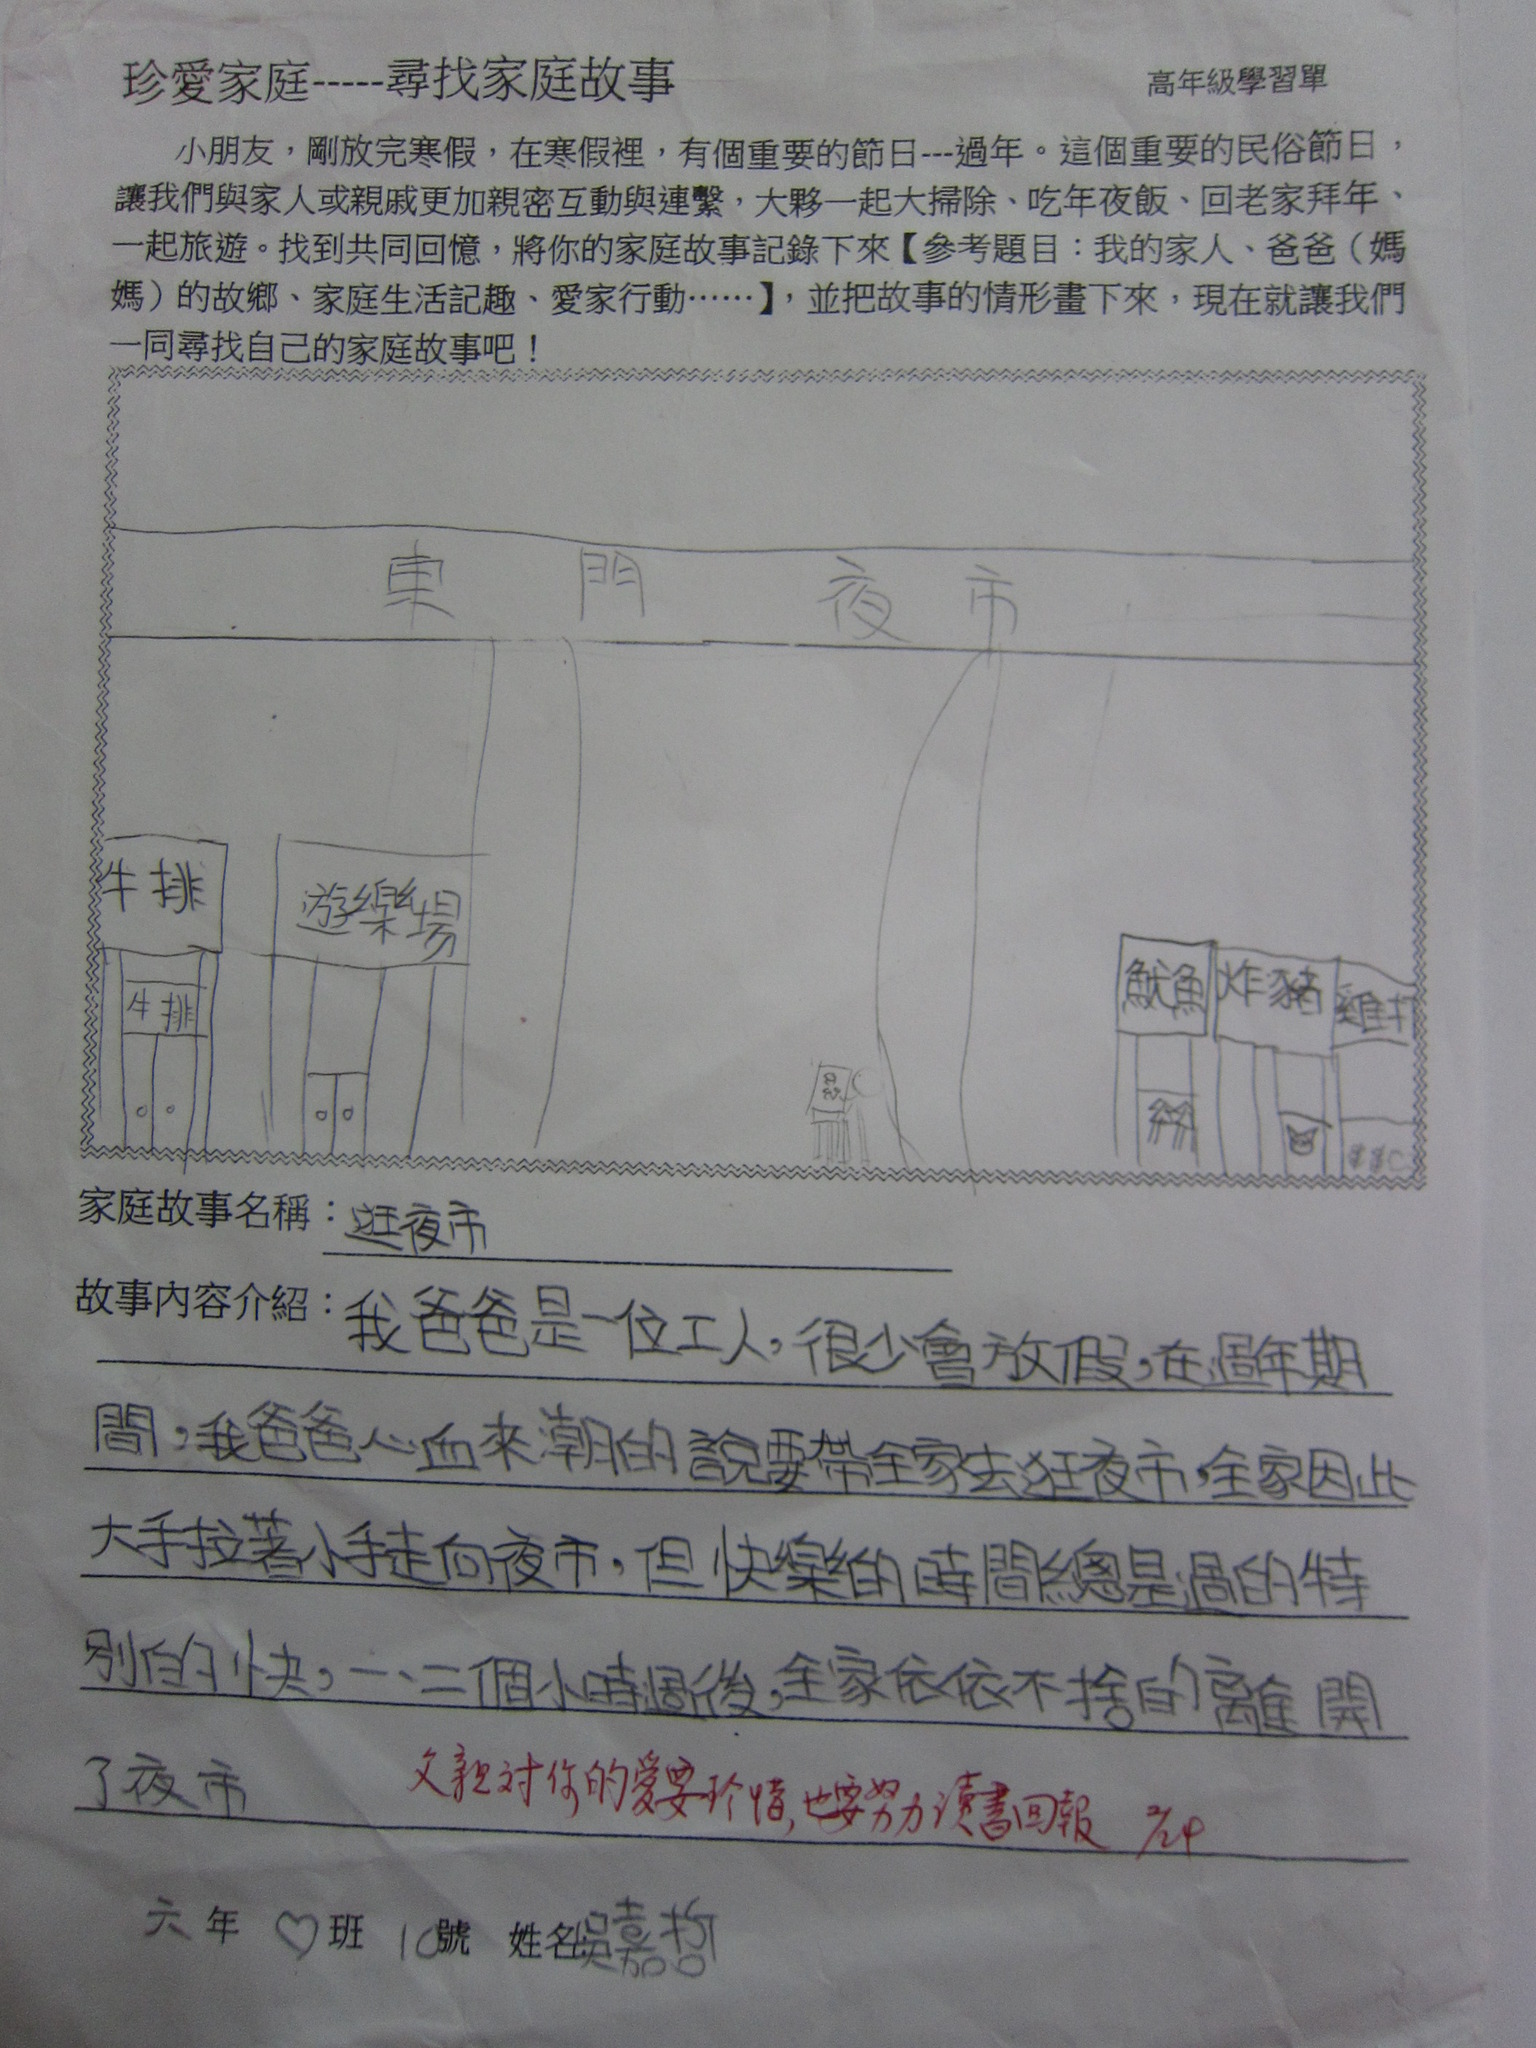 珍愛家庭-----尋找家庭故事
高年級學習單
小朋友，剛放完寒假，在寒假裡，有個重要的節日---過年。這個重要的民俗節日，
讓我們與家人或親戚更加親密互動與連繫，大夥一起大掃除、吃年夜飯、回老家拜年、
一起旅遊。找到共同回憶，將你的家庭故事記錄下來【參考題目：我的家人、爸爸（媽
媽）的故鄉、家庭生活記趣、愛家行動……】，並把故事的情形畫下來，現在就讓我們
一同尋找自己的家庭故事吧！
東門夜市
牛排
遊樂場
牛排
魷魚
炸豬
雞排
家庭故事名稱：逛夜市
故事內容介紹：我爸爸是一位工人，很少會放假，在過年期
間，我爸爸心血來潮的說要帶全家去逛夜市，全家因此
大手拉著小手走向夜市，但快樂的時間總是過的特
別的快，一、二個小時過後，全家依依不捨的離開
了夜市
父親對你的愛要珍惜，也要努力讀書回報 2/24
六年♡班10號 姓名吳嘉哲